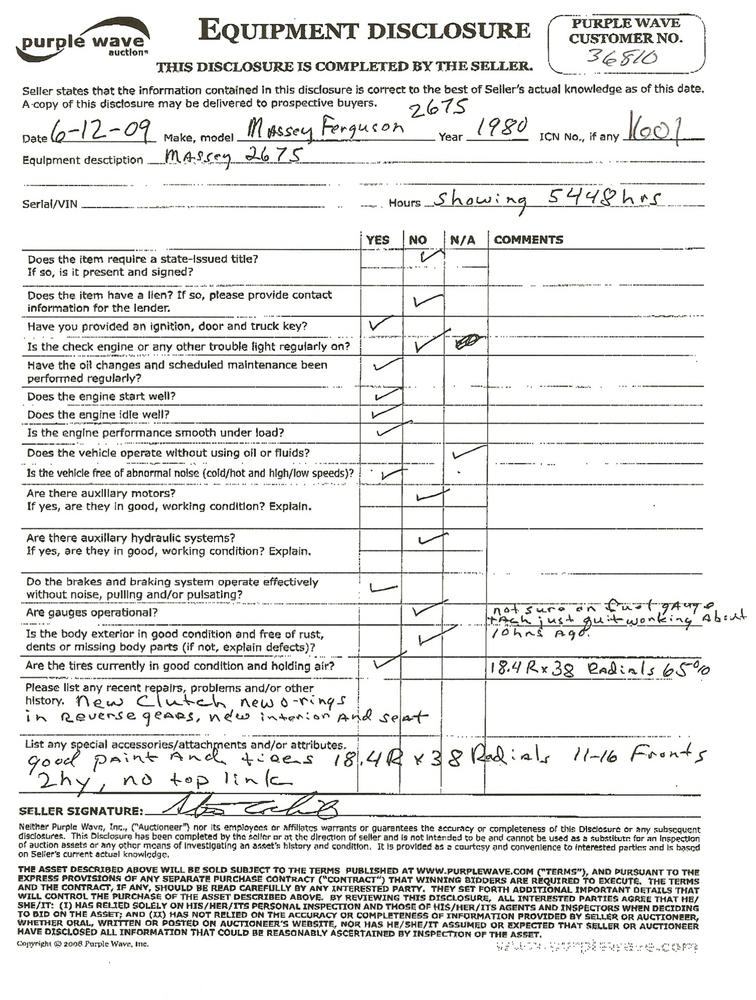 purple wave
auction
EQUIPMENT DISCLOSURE
PURPLE WAVE
CUSTOMER NO.
36810
THIS DISCLOSURE IS COMPLETED BY THE SELLER.
Seller states that the information contained in this disclosure is correct to the best of Seller's actual knowledge as of this date.
A copy of this disclosure may be delivered to prospective buyers.
2675
Date 6-12-09 Make, model Massey Ferguson Year 1980 ICN No., if any 1601
Equipment desctiption Massey 2675
Serial/VIN Hours showing 5448hrs
YES NO N/A COMMENTS
Does the item require a state-issued title?
If so, is it present and signed?
Does the item have a lien? If so, please provide contact
information for the lender.
Have you provided an ignition, door and truck key?
Is the check engine or any other trouble light regularly on?
Have the oil changes and scheduled maintenance been
performed regularly?
Does the engine start well?
Does the engine idle well?
Is the engine performance smooth under load?
Does the vehicle operate without using oil or fluids?
Is the vehicle free of abnormal noise (cold/hot and high/low speeds)?
Are there auxiliary motors?
If yes, are they in good, working condition? Explain.
Are there auxiliary hydraulic systems?
If yes, are they in good, working condition? Explain.
Do the brakes and braking system operate effectively
without noise, pulling and/or pulsating?
Are gauges operational? not sure on fuel gauge
tach just quit working about
Is the body exterior in good condition and free of rust, 10hrs ago.
dents or missing body parts (if not, explain defects)?
Are the tires currently in good condition and holding air? 18.4Rx38 Radials 65%
Please list any recent repairs, problems and/or other
history. New Clutch, new o-rings
in Reverse gears, new interior and seat
List any special accessories/attachments and/or attributes.
good paint and tires 18.4R x 38 Radials 11-16 Fronts
2hy, no top link
SELLER SIGNATURE:
Neither Purple Wave, Inc., ("Auctioneer") nor its employees or affiliates warrants or guarantees the accuracy or completeness of this Disclosure or any subsequent
disclosures. This Disclosure has been completed by the seller or at the direction of seller and is not intended to be and cannot be used as a substitute for an inspection
of auction assets or any other means of investigating an asset's history and condition. It is provided as a courtesy and convenience to interested parties and is based
on Seller's current actual knowledge.
THE ASSET DESCRIBED ABOVE WILL BE SOLD SUBJECT TO THE TERMS PUBLISHED AT WWW.PURPLEWAVE.COM ("TERMS"), AND PURSUANT TO THE
EXPRESS PROVISIONS OF ANY SEPARATE PURCHASE CONTRACT ("CONTRACT") THAT WINNING BIDDERS ARE REQUIRED TO EXECUTE. THE TERMS
AND THE CONTRACT, IF ANY, SHOULD BE READ CAREFULLY BY ANY INTERESTED PARTY. THEY SET FORTH ADDITIONAL IMPORTANT DETAILS THAT
WILL CONTROL THE PURCHASE OF THE ASSET DESCRIBED ABOVE. BY REVIEWING THIS DISCLOSURE, ALL INTERESTED PARTIES AGREE THAT HE/
SHE/IT: (I) HAS RELIED SOLELY ON HIS/HER/ITS PERSONAL INSPECTION AND THOSE OF HIS/HER/ITS AGENTS AND INSPECTORS WHEN DECIDING
TO BID ON THE ASSET; AND (II) HAS NOT RELIED ON THE ACCURACY OR COMPLETENESS OF INFORMATION PROVIDED BY SELLER OR AUCTIONEER,
WHETHER ORAL, WRITTEN OR POSTED ON AUCTIONEER'S WEBSITE, NOR HAS HE/SHE/IT ASSUMED OR EXPECTED THAT SELLER OR AUCTIONEER
HAVE DISCLOSED ALL INFORMATION THAT COULD BE REASONABLY ASCERTAINED BY INSPECTION OF THE ASSET.
Copyright © 2008 Purple Wave, Inc.
www.purplewave.com